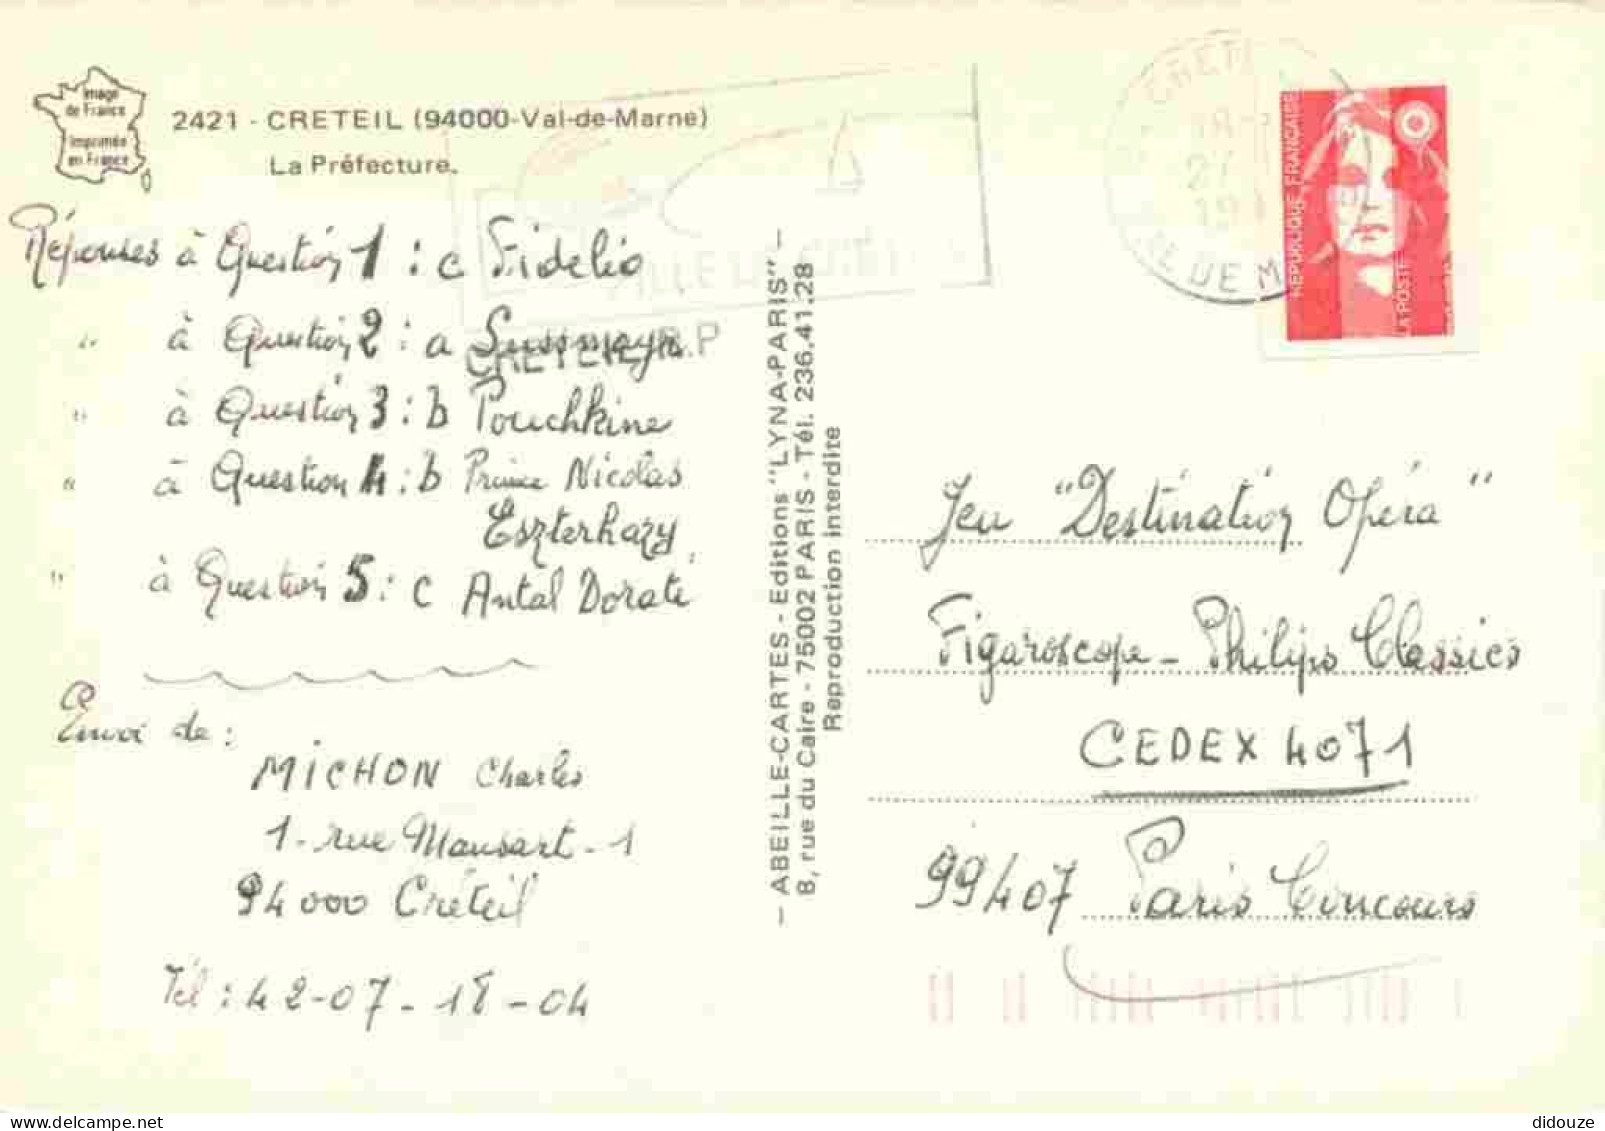 Image
de France
Imprimée
en France
2421 - CRETEIL (94000-Val-de-Marne)
La Préfecture.
Réponses à Question 1 : c Fidelio
" à Question 2 : a Sussmayr
CRETEIL R.P
" à Question 3 : b Pouchkine
" à Question 4 : b Prince Nicolas
Eszterhazy
" à Question 5 : c Antal Dorati
Envoi de :
MICHON Charles
1 - rue Mansart - 1
94000 Créteil
Tél : 42-07-18-04
— ABEILLE-CARTES - Editions "LYNA-PARIS" —
8, rue du Caire - 75002 PARIS - Tél. 236.41.28
Reproduction interdite
CRETE
DE M
REPUBLIQUE FRANÇAISE
LA POSTE
Jeu "Destination Opéra"
Figaroscope - Philips Classics
CEDEX 4071
99407 Paris Concours
didouze